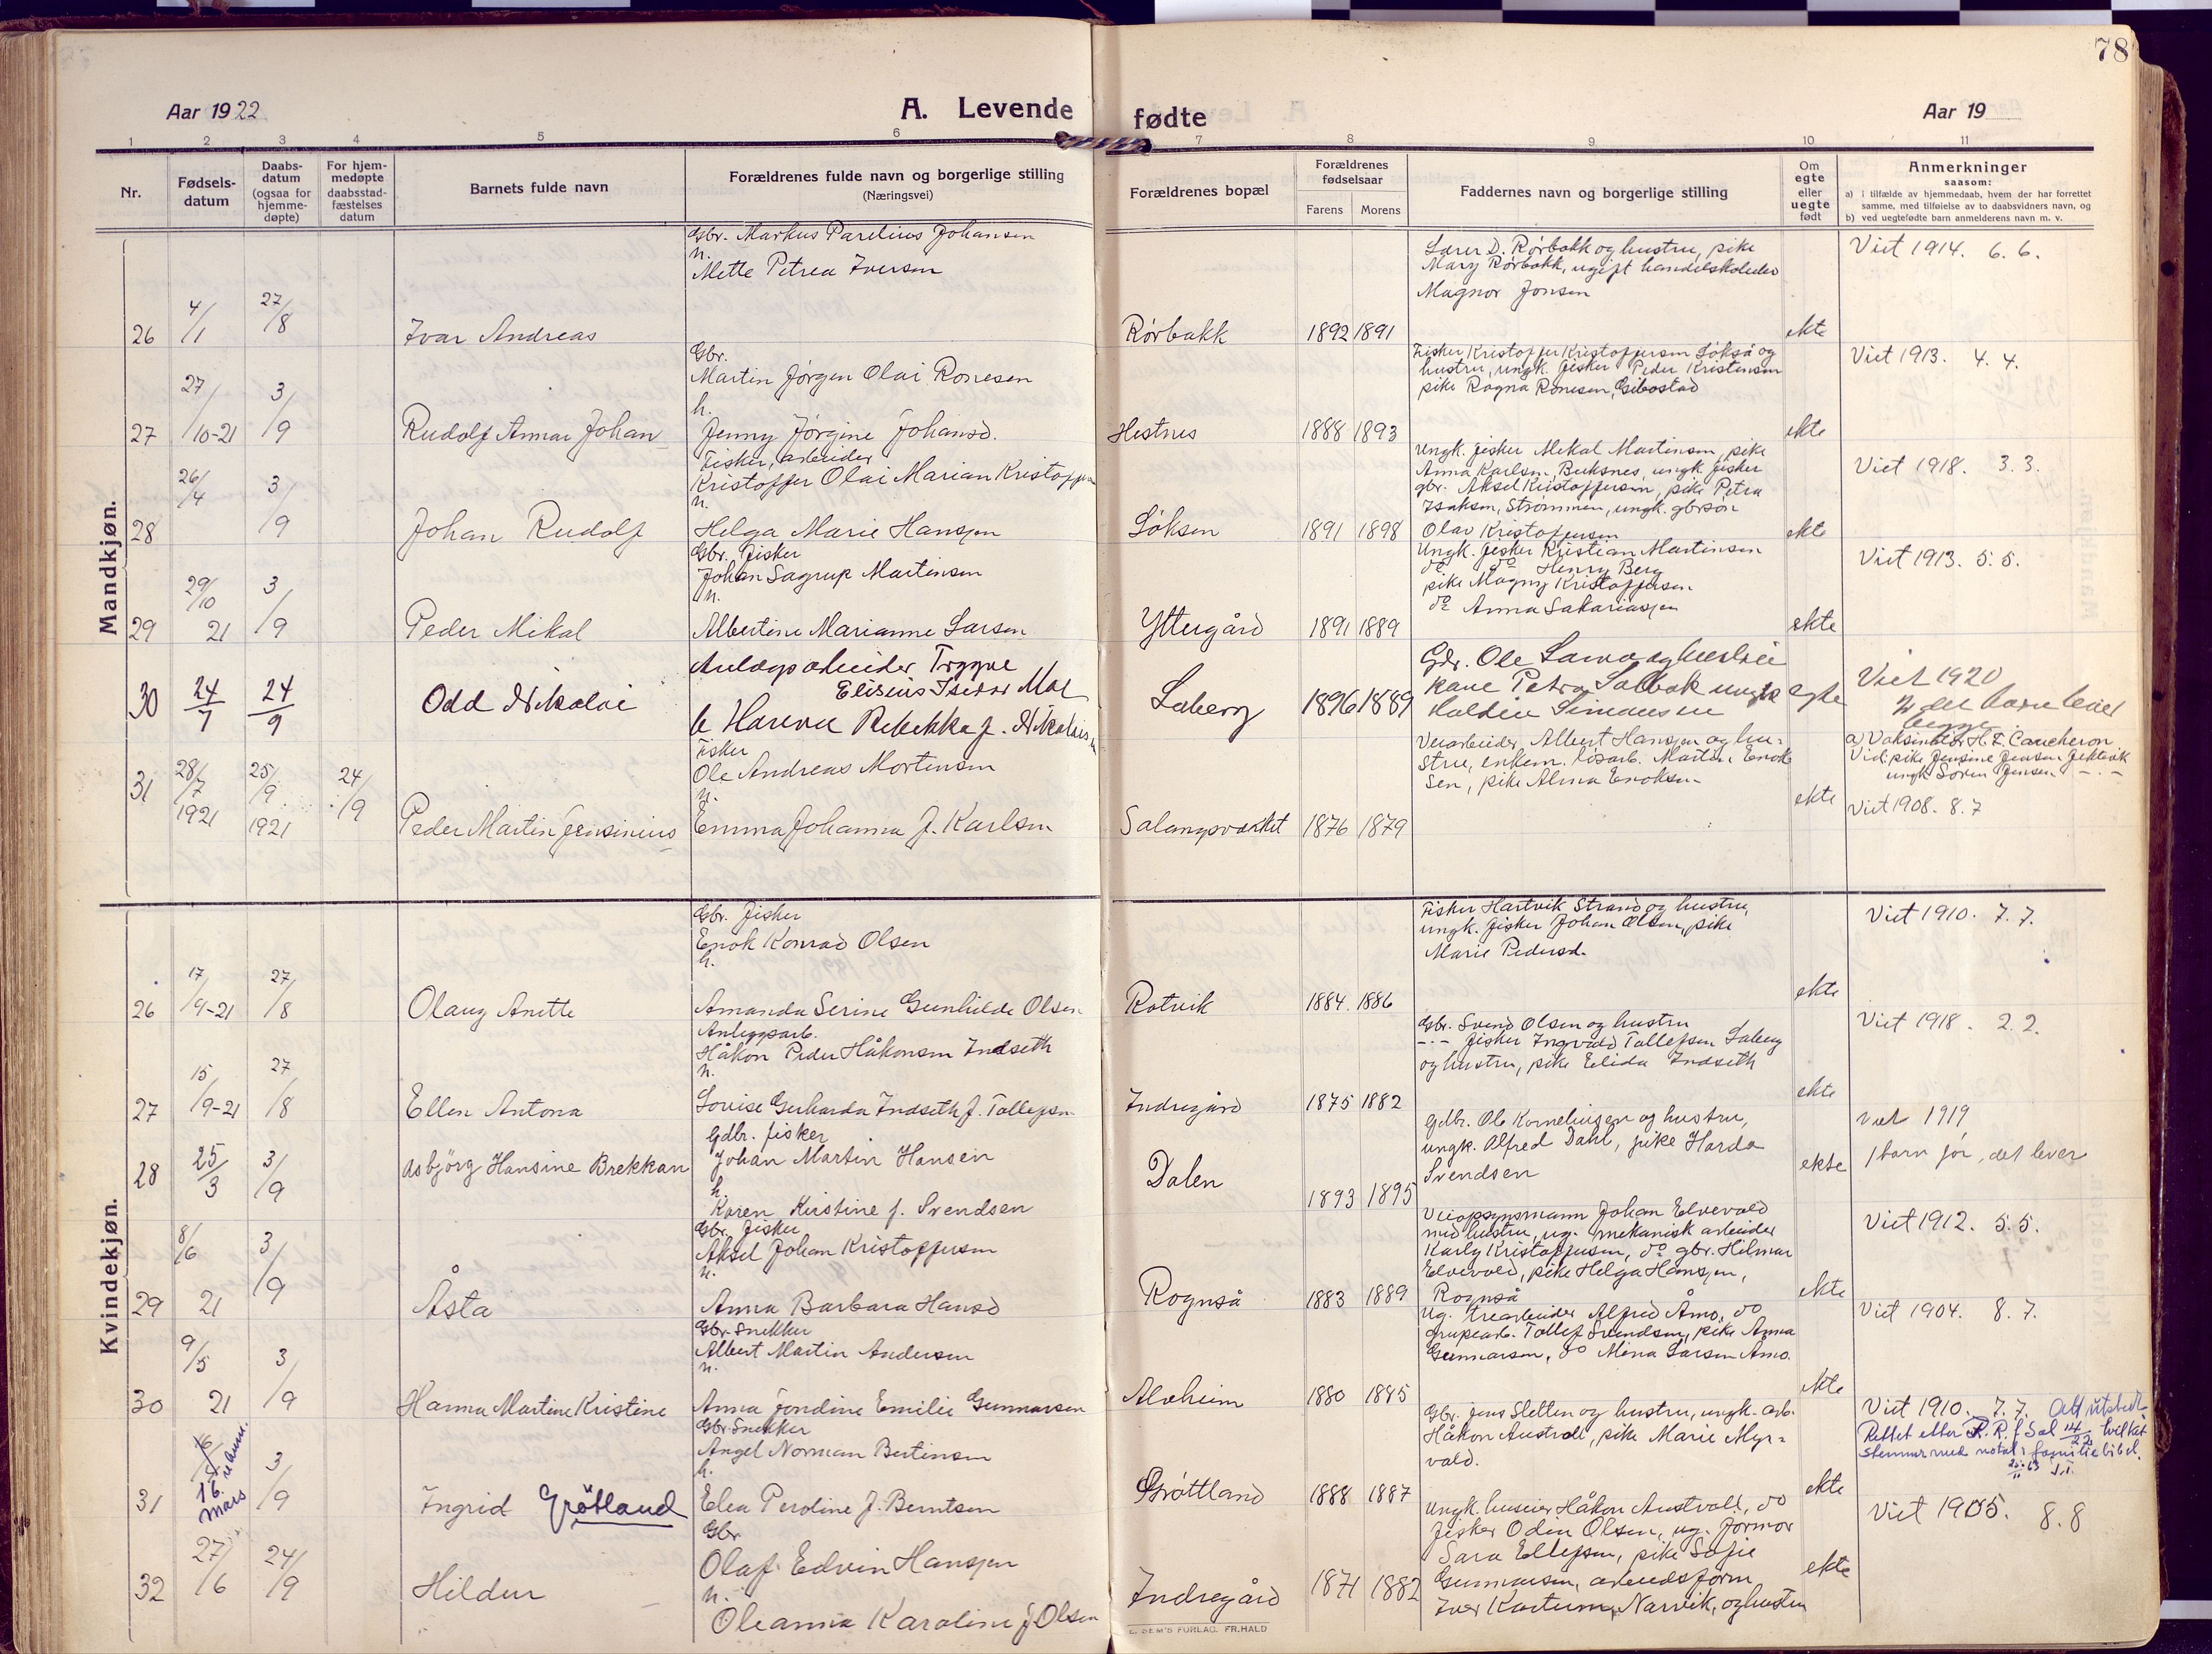 78
Aar 1922
A. Levende
fødte
Aar 19
1 2 3 4 5 6 7 8 9 10 11
Nr.
Fødsels-
datum
Daabs-
datum
(ogsaa for
hjemme-
døpte)
For hjem-
medøpte
daabsstad-
fæstelses
datum
Barnets fulde navn
Forældrenes fulde navn og borgerlige stilling
(Næringsvei)
Forældrenes bopæl
Forældrenes
fødselsaar
Farens Morens
Faddernes navn og borgerlige stilling
Om
egte
eller
uegte
født
Anmerkninger
saasom:
a) i tilfælde av hjemmedaab, hvem der har forrettet
samme, med tilføielse av to daabsvidners navn, og
b) ved uegtefødte barn anmelderens navn m. v.
Mandkjøn.
Gbr. Markus Parelius Johansen
h.
Mette Petrea Iversen
26 4/1 27/8 Ivar Andreas
Rørbakk 1892 1891
Lærer D. Rørbakk og hustru, pike
Mary Rørbakk, ugift handelskoleelev
Magnor Jonsen
ekte
Viet 1914. 6. 6.
Gbr.
Martin Jørgen Olai Ronesen
h.
27 27/10-21 3/9 Rudolf Annar Johan Jenny Jørgine Johansd.
Hestnes 1888 1893
Fisker Kristoffer Kristoffersen Løkså og
hustru, ungk. fisker Peder Kristensen
pike Ragna Ronesen, Gibostad
ekte
Viet 1913. 4. 4.
Fisker, arbeider
Kristoffer Olai Marian Kristoffersen
h.
28 26/4 3/9 Johan Rudolf Helga Marie Hansen
Løksen 1891 1898
Ungk. fisker Mekal Martinsen, pike
Anna Karlsen, Buksnes, ungk. fisker
gbr. Aksel Kristoffersen, pike Petra
Isaksen, Strømmen, ungk. gbrsøn
Olav Kristoffersen
ekte
Viet 1918. 3. 3.
Gbr. fisker
Johan Sagrup Martinsen
h.
29 29/10 21 3/9 Peder Mikal Albertine Marianne Larsen
Yttergård 1891 1889
Ungk. fisker Kristian Martinsen
do do Henry Berg
pike Magny Kristoffersen
do Anna Sakariassen
ekte
Viet 1913. 5. 5.
Anlægsarbeider Trygve
Elisius Isidor Moe
30 24/7 24/9 Odd Nikolai h Rebekka f. Nikolaisen
Laberg 1896 1889
Gdr. Ole og hustru
kone Petra ungk
Haldin Simonsen
egte
Viet 1920
2 det barn lever
begge
Fisker
Ole Andreas Mortensen
h.
31 28/7 1921 25/9 1921 24/9 Peder Martin Jensinius Emma Johanna f. Karlsen
Salangsverket 1876 1879
Veiarbeider Albert Hansen og hu=
stru, enkem. løsarb. Martin Enok=
sen, pike Alma Enoksen
ekte
a) Vaksinatør H. F. Caucheron
Vid: pike Jensine Jensen
ungk Søren Jensen -"-
Viet 1908. 8. 7
Kvindekjøn.
Gbr. fisker
Enok Konrad Olsen
h.
26 17/9-21 27/8 Olaug Anette Amanda Serine Gunhilde Olsen
Rotvik 1884. 1886
Fisker Hartvik Strand og hustru,
ungk. fisker Johan Olsen, pike
Marie Pedersd.
ekte
Viet 1910. 7. 7.
Anleggsarb.
Håkon Peder Håkonsen Indseth
h.
27 15/9-21 27/8 Ellen Antona Lovise Gerharda Indseth f. Tollefsen
Indregård 1875 1882
Gbr. Svend Olsen og hustru
-"- fisker Ingvald Tollefsen Laberg
og hustru, pike Elida Indseth
ekte
Viet 1918. 2. 2.
Gdbr. fisker
28 25/3 3/9 Asbjörg Hansine Brekkan Johan Martin Hansen
h.
Karen Kristine f. Svendsen
Dalen 1893 1895
Gdbr. Ole Korneliussen og hustru,
ungk. Alfred Dahl, pike Harda
Svendsen
ekte
Viet 1919
1 barn før, det lever
Gbr. fisker
Aksel Johan Kristoffersen
h.
29 8/6 21 3/9 Åsta Anna Barbara Hansd
Rognså 1883 1889
Veiopsynsmann Johan Elvevold
med hustru, ug. mekanisk arbeider
Karly Kristoffersen, do gbr. Hilmar
Elvevold, pike Helga Hansen,
Rognså
ekte
Viet 1912. 5. 5.
Gbr. Snekker
Albert Martin Andersen
h.
30 9/5 21 3/9 Hanna Martine Kristine Anna Jondine Emilie Gunnarsen
Alvheim 1880 1885
Ug. trearbeider Alfred Åmo, do
grubearb. Tollef Svendsen, pike Anna
Gunnarsen, do Mina Larsen Åmo.
ekte
Viet 1904. 8. 7.
Gbr. Snekker
Angel Norman Bertinsen
h.
31 16. mars 3/9 Ingrid Grötland Elea Peroline f. Berntsen
Grøttland 1888 1887
Gbr. Jens Sletten og hustru, ungk. arb.
Håkon Austvoll, pike Marie Myr=
vold.
ekte
Viet 1910. 7. 7. Att utstedt
Rettet etter F. R. f Sal 14/22 hvilket
stemmer med notat i familiebibel.
Gbr
Olaf Edvin Hansen
h.
32 27/6 24/9 Hildur Oleanna Karoline f Olsen
Indregård 1871 1882
Ungk. huseier Håkon Austvoll, do
fisker Odin Olsen, ug. formor
Sara Ellefsen, pike Sofie
Gunnarsen, arbeidsform.
Iver Kartum, Narvik, og hustru
ekte
Viet 1905. 8. 8
E. SEM'S FORLAG. FR.HALD